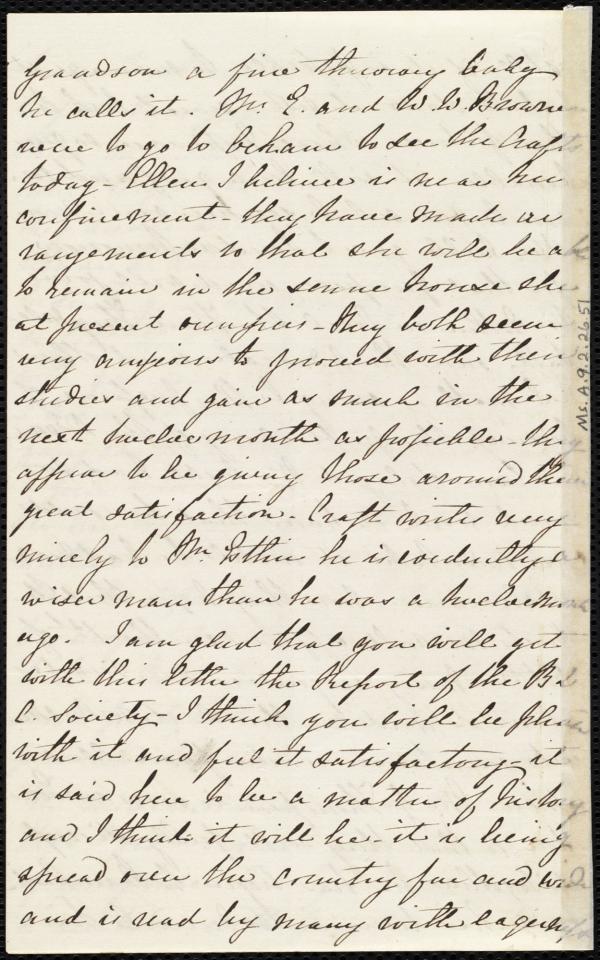 Grandson a fine thriving baby
he calls it. Mr. E. and W. W. Browne
were to go to Ockham to see the Crafts
today - Ellen I believe is near her
confinement - they have made ar
rangements so that she will be able
to remain in the same house she
at present occupies - They both seem
very anxious to proceed with their
studies and gain as much in the
next twelve month as possible - they
appear to be giving those around them
great satisfaction. Craft writes very
nicely to Mr. Estlin he is evidently a
wiser man than he was a twelvemonth
ago. I am glad that you will get
with this letter the Report of the B &
C. Society - I think you will be pleased
with it and feel it satisfactory - it
is said here to be a matter of history
and I think it will be - it is being
spread over the country far and wide
and is read by many with eagerness
Ms. A. 9. 2. 26. 51